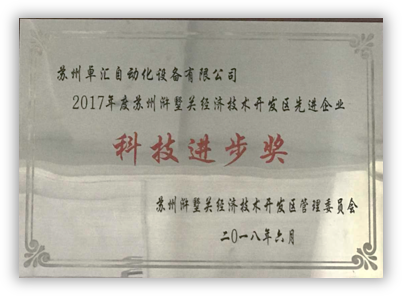 苏州卓汇自动化设备有限公司
2017年度苏州浒墅关经济技术开发区先进企业
科技进步奖
苏州浒墅关经济技术开发区管理委员会
二〇一八年六月